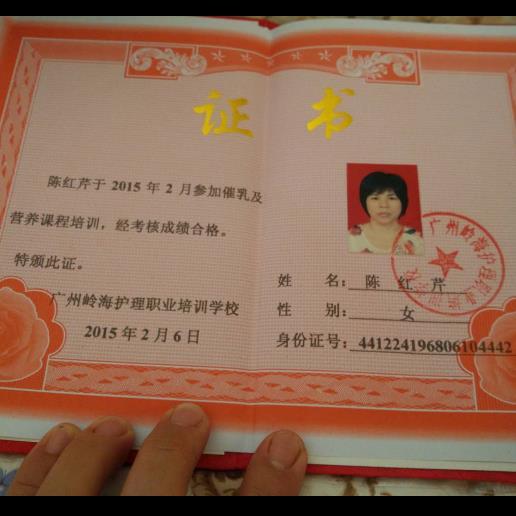 证书
陈红芹于 2015 年 2 月参加催乳及
营养课程培训，经考核成绩合格。
特颁此证。
广州岭海护理职业培训学校
2015 年 2 月 6 日
姓 名： 陈 红 芹
性 别： 女
身份证号：441224196806104442
广州岭海护理职业培训